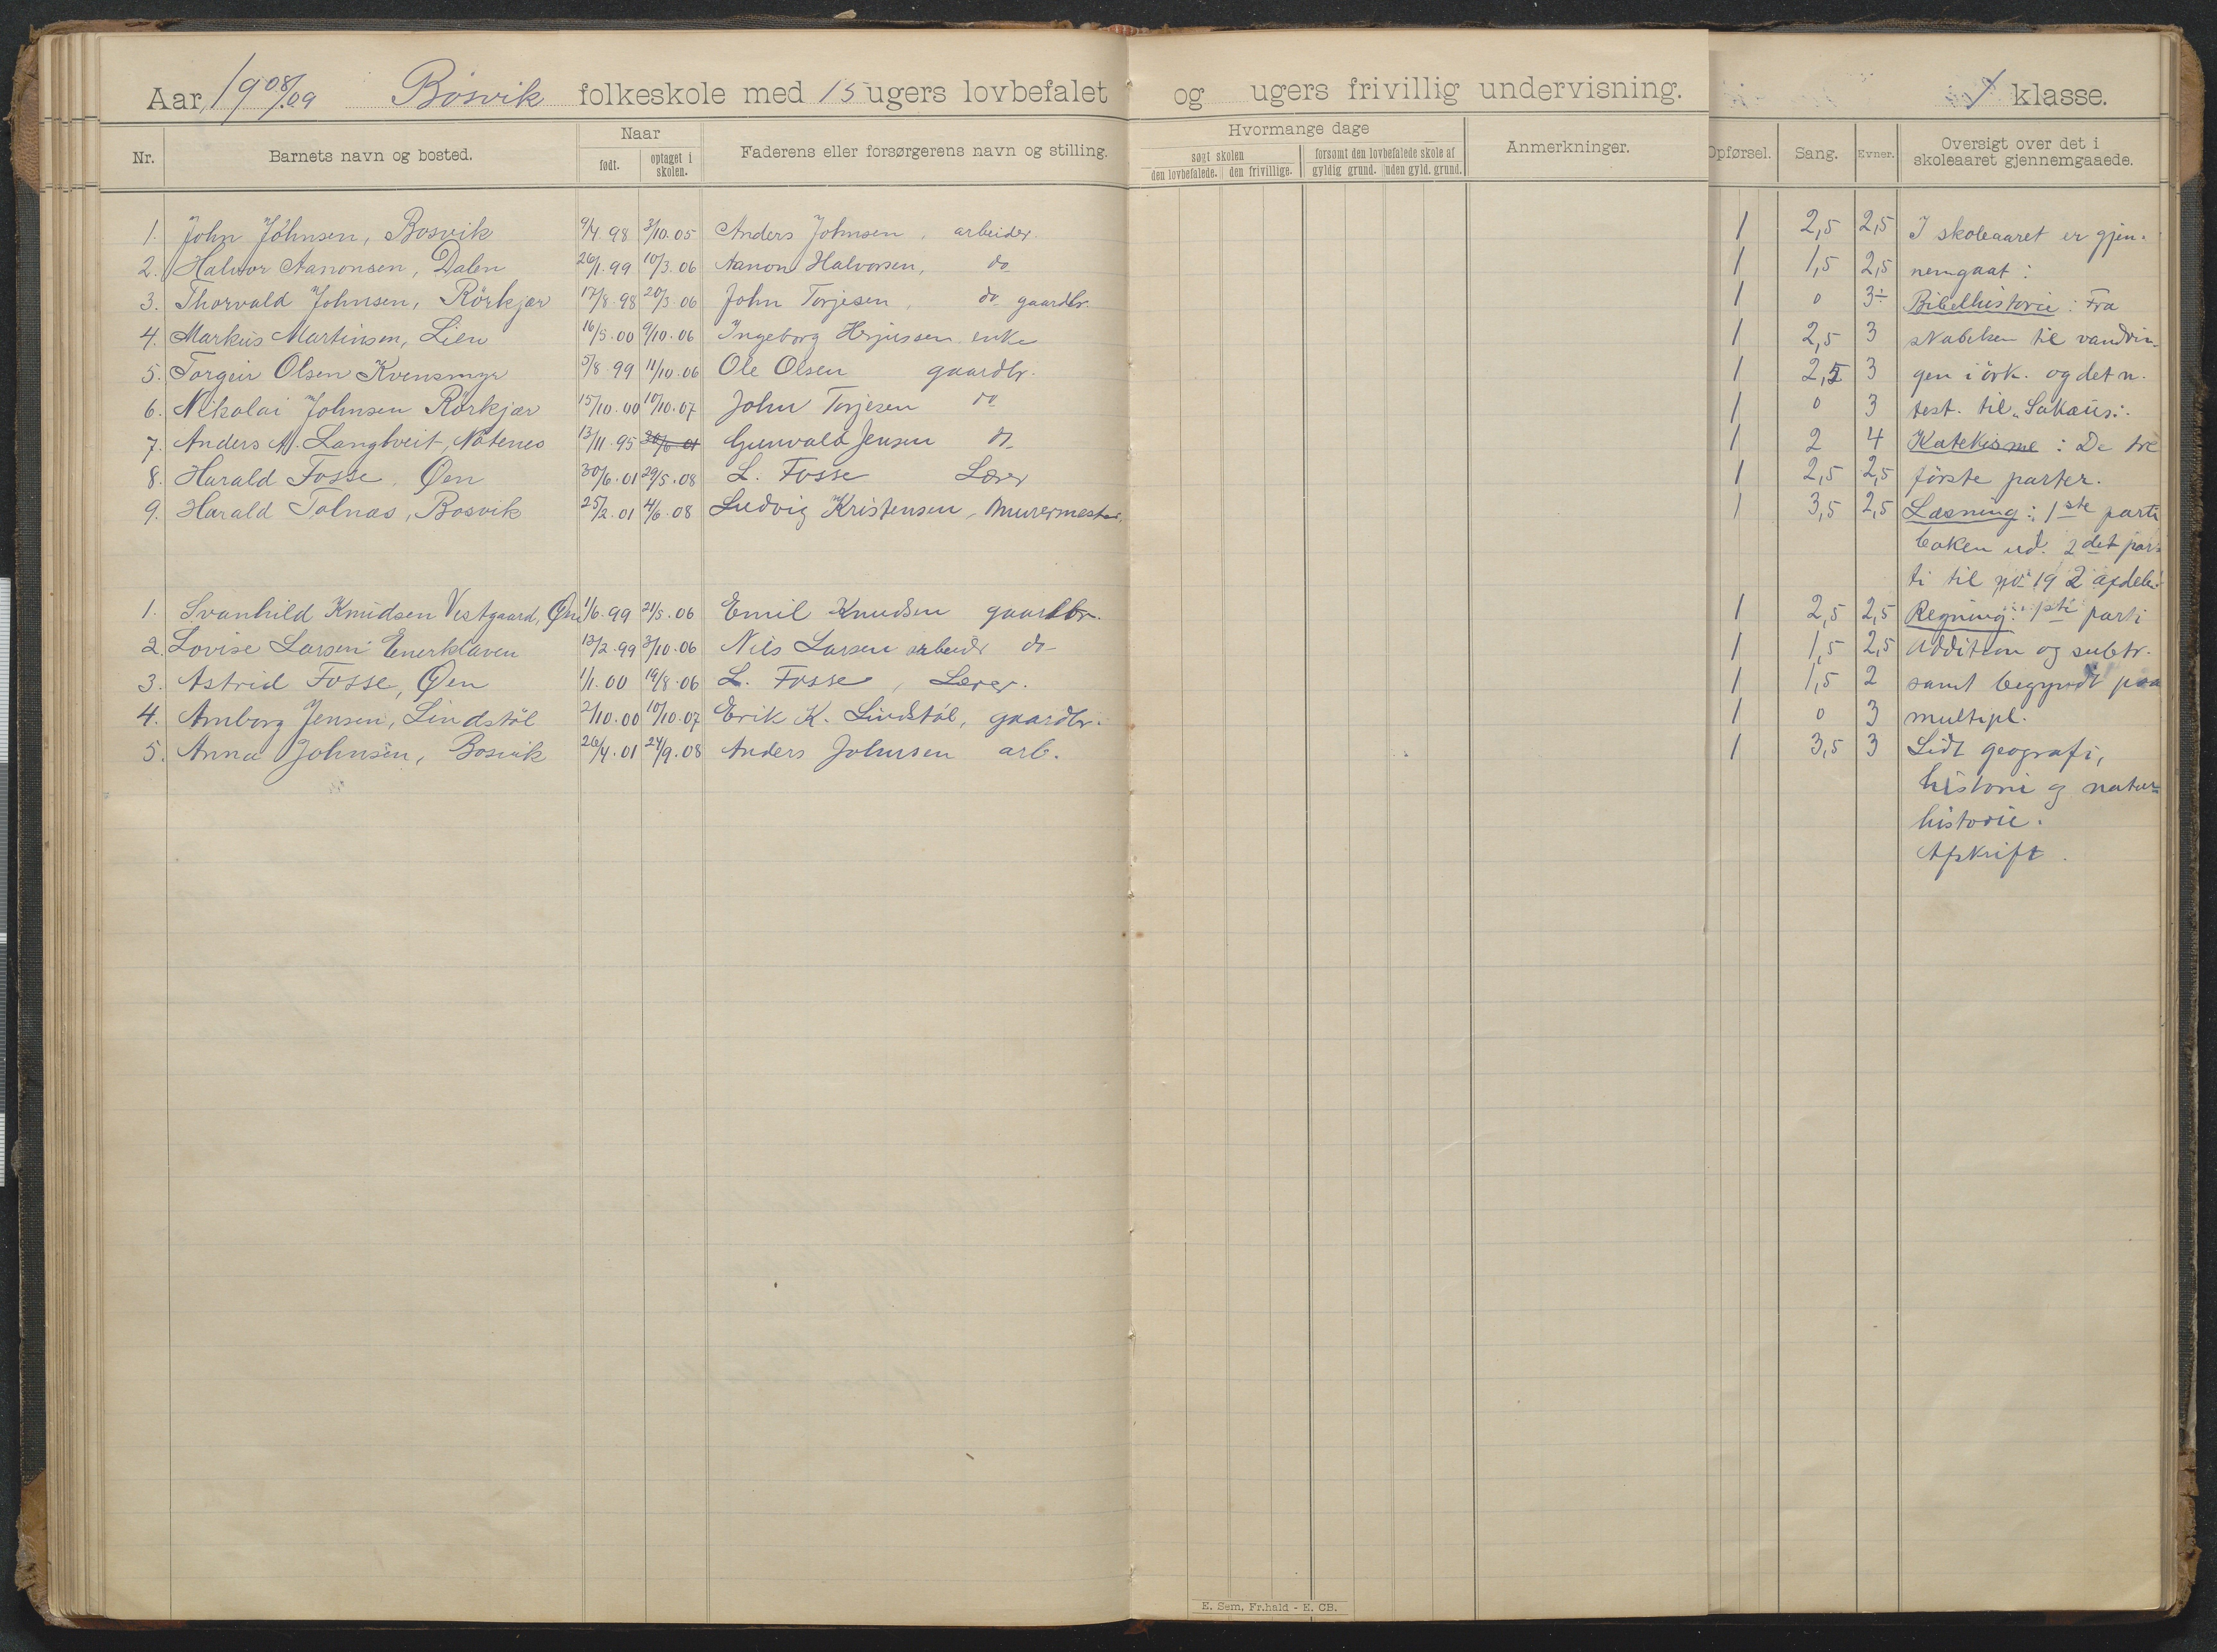 Aar, 1908/09 Bosvik folkeskole med 15 ugers lovbefalet og ugers frivillig undervisning. 1 klasse.
Nr. Barnets navn og bosted. Naar født. optaget i skolen. Faderens eller forsørgerens navn og stilling. Hvormange dage søgt skolen den lovbefalede. den frivillige. forsømt den lovbefalede skole af gyldig grund. uden gyld. grund. Anmerkninger. Opførsel. Sang. Evner. Oversigt over det i skoleaaret gjennemgaaede.
1. John Johnsen, Bosvik 9/4 98 3/10.05 Anders Johnsen, arbeider. 1 2,5 2,5 I skoleaaret er gjen-
2. Halvor Aanonsen, Dalen 26/1.99 10/3.06 Aanon Halvorsen, do 1 1,5 2,5 nemgaat:
3. Thorvald Johnsen, Rörkjær 17/8 98 20/3.06 John Torjesen, do gaardbr. 1 0 3÷ Bibelhistorie: Fra
4. Markus Martinsen, Lien 16/5.00 9/10.06 Ingeborg enke 1 2,5 3 skabelsen til vandrin-
5. Torgeir Olsen Kvensmyr 5/8.99 11/10.06 Ole Olsen gaardbr. 1 2,5 3 gen i örk. og det n.
6. Nikolai Johnsen Rörkjær 15/10.00 10/10.07 John Torjesen do 1 0 3 test. til "Sakæus".
7. Anders A. Langtveit, Natenes 13/11.95 30/6 01 Gunvald Jensen do 1 2 4 Katekisme: De tre
8. Harald Fosse, Øen 30/6.01 29/5.08 L. Fosse Lærer 1 2,5 2,5 förste parter.
9. Harald Tolnæs, Bosvik 25/2.01 4/6.08 Ludvig Kristensen, Murermester, 1 3,5 2,5 Læsning: 1ste parti
boken ud. 2det par-
ti til no 19 2 afdel.
1. Svanhild Knudsen Vestgaard, Øen 1/6.99 21/5.06 Emil Knudsen gaardbr. 1 2,5 2,5 Regning: 1ste parti
2. Lovise Larsen Enerklaven 13/2.99 3/10.06 Nils Larsen arbeider do 1 1,5 2,5 Addition og subtr.
3. Astrid Fosse, Øen 1/1.00 19/8.06 L. Fosse, Lærer. 1 1,5 2 samt begyndt paa
4. Amborg Jensen, Lindstöl 2/10.00 10/10.07 Erik K. Lindstöl, gaardbr. 1 0 3 multipl.
5. Anna Johnsen, Bosvik 26/4.01 24/9.08 Anders Johnsen arb. 1 3,5 3 Lidt geografi,
historie og natur-
historie.
Afskrift.
E. Sem, Fr.hald - E. CB.